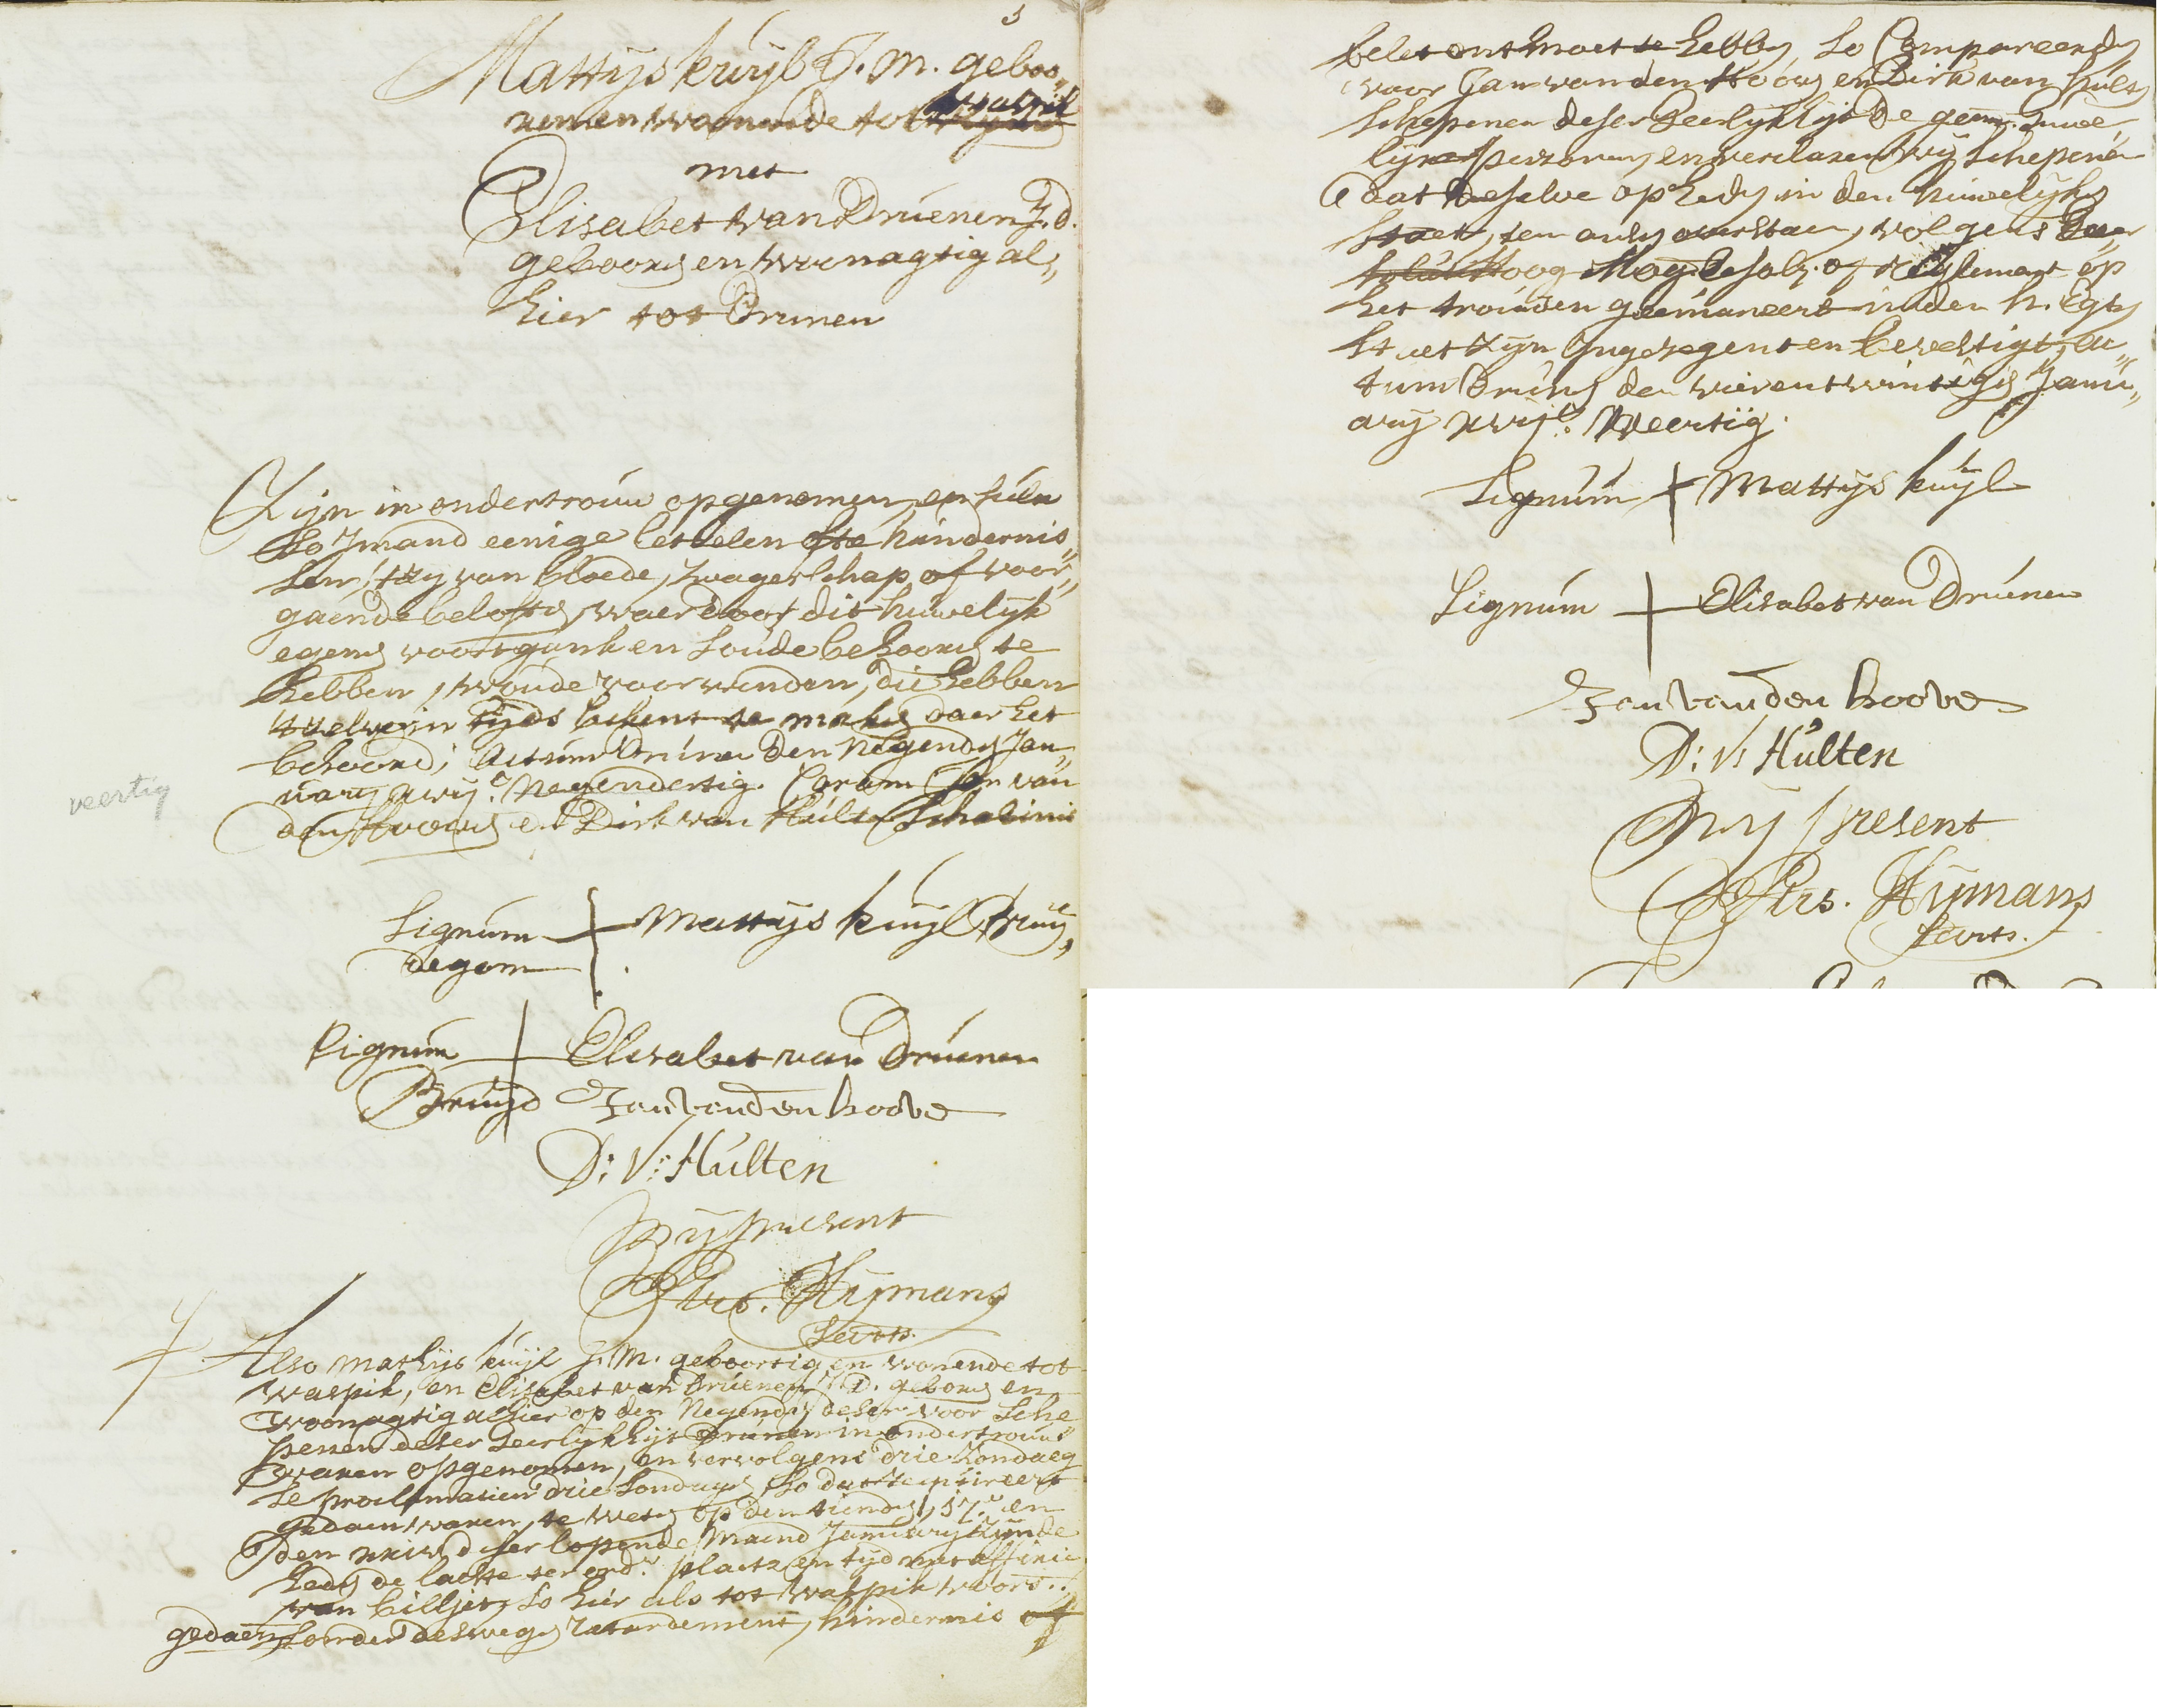 Mattijs kuijl J. M. geboo„
ren en wonende tot Waspik
met
Elisabet van Drúenen J. d.
gebooren en woonagtig al„
hier tot Drunen
Zijn in ondertroúw opgenomen, en súlx
So Jmand eenige letselen ofte hindernis„
sen, 't zij van bloede, zwagerschap, of voor„
gaende beloften, waerdoor dit húwelijk
egeen voortgank en soúde behooren te
hebben, woude voorwenden, die hebben
't selve in tijds bekent te maken daer het
behoord; Actúm Drúnen den Negenden Jan„
uary xvijc. Negendertig. Coram Jan van
den Hooven en Dirk van Húlten Schabinis
veertig
Signúm Mattijs kuijl Bruij„
degom
Signúm Elisabet van Drúenen
Bruijd Jan van den hoove
D: V: Húlten
Mij present
Hijmans
Secrts.
Also Mathijs kuijl J. M. geboortig en wonende tot
Waspik, en Elisabet van Drúenen J. D. geboren en
woonagtig alhier op den Negenden deser voor Sche„
penen deser heerlijkhijt Drúnen in ondertroúw
waren opgenomen, en vervolgens drie Zondaeg
se proclamatien drie Sondagen So
gedaen waren, te weten op den tienden, 17.e en
den deser lopende Maend Januarij Zijnde
heden de laetste ter ord.r plaetze en tijd met affixie
van billjet, So hier als tot Waspik voors.
gedaen sonder deswegen retardement, hindernis of
belet ontmoet te hebben, So Compareerden
voor Jan van den Hooven en Dirk van húlten
Schepenen deser heerlijkhijt de gem. Húwe„
lijxe persoonen, en verclaren wij Schepenen
dat deselve op heden in den húwelijken
Staet, ten overstaen, volgens Haer
Hoog Mog. Resol. of Reglement op
het troúwen geëmaneert in den h. Egten
Staet zijn Ingezegent en bevestigt, Ac„
tum Drúnen den vierentwintigen Janú„
arij xvijc. Veertig.
Signúm Mattijs kuijl
Signúm Elisabet van Drúenen
Jan van den hoove
D: V: Húlten
Mij present
Hijmans
Secrts.